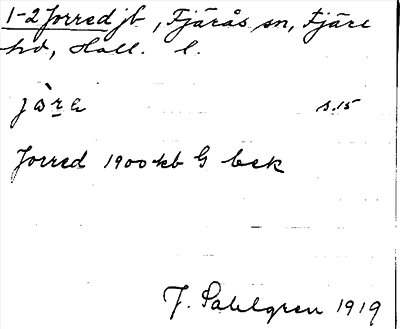 1-2 Jorred jb, Fjärås sn, Fjäre
hd, Hall. l.
s.15
Jorred 1900 kb G bek
J. Sahlgren 1919